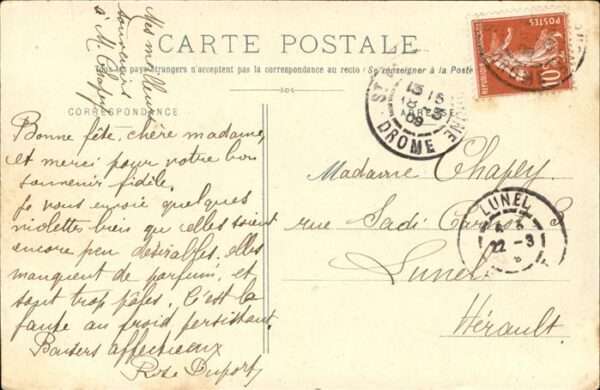 Mes meilleurs
souvenirs
à M. Chapey
CARTE POSTALE
pays étrangers n'acceptent pas la correspondance au recto (Se renseigner à la Poste
CORRESPONDANCE
Bonne fête, chère madame,
et merci pour votre bon
souvenir fidèle.
Je vous envoie quelques
violettes bien qu'elles soient
encore peu désirables, elles
manquent de parfum, et
sont trop pâles. C'est la
faute au froid persistant.
Baisers affectueux
Rose Duport
POSTES
10
DROME
Madame Chapey.
rue Sadi Carnot 3
Lunel
Hérault.
LUNEL
22-3